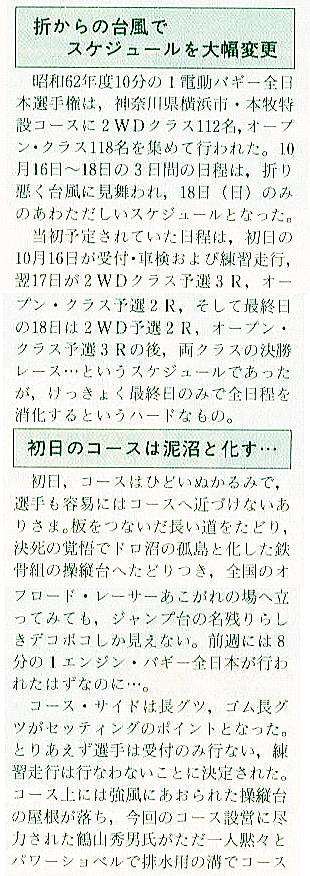 折からの台風で
スケジュールを大幅変更
昭和62年度10分の1電動バギー全日
本選手権は，神奈川県横浜市・本牧特
設コースに2WDクラス112名，オープ
ン・クラス118名を集めて行われた。10
月16日〜18日の3日間の日程は，折り
悪く台風に見舞われ，18日（日）のみ
のあわただしいスケジュールとなった。
当初予定されていた日程は，初日の
10月16日が受付・車検および練習走行，
翌17日が2WDクラス予選3R，オー
プン・クラス予選2R，そして最終日
の18日は2WD予選2R，オープン・
クラス予選3Rの後，両クラスの決勝
レース…というスケジュールであった
が，けっきょく最終日のみで全日程を
消化するというハードなもの。
初日のコースは泥沼と化す…
初日，コースはひどいぬかるみで，
選手も容易にはコースへ近づけないあ
りさま。板をつないだ長い道をたどり，
決死の覚悟でドロ沼の孤島と化した鉄
骨組の操縦台へたどりつき，全国のオ
フロード・レーサーあこがれの場へ立
ってみても，ジャンプ台の名残りらし
きデコボコしか見えない。前週には8
分の1エンジン・バギー全日本が行わ
れたはずなのに…。
コース・サイドは長グツ，ゴム長グ
ツがセッティングのポイントとなった。
とりあえず選手は受付のみ行ない，練
習走行は行なわないことに決定された。
コース上には強風にあおられた操縦台
の屋根が落ち，今回のコース設営に尽
力された鶴山秀男氏がただ一人黙々と
パワーショベルで排水用の溝でコース